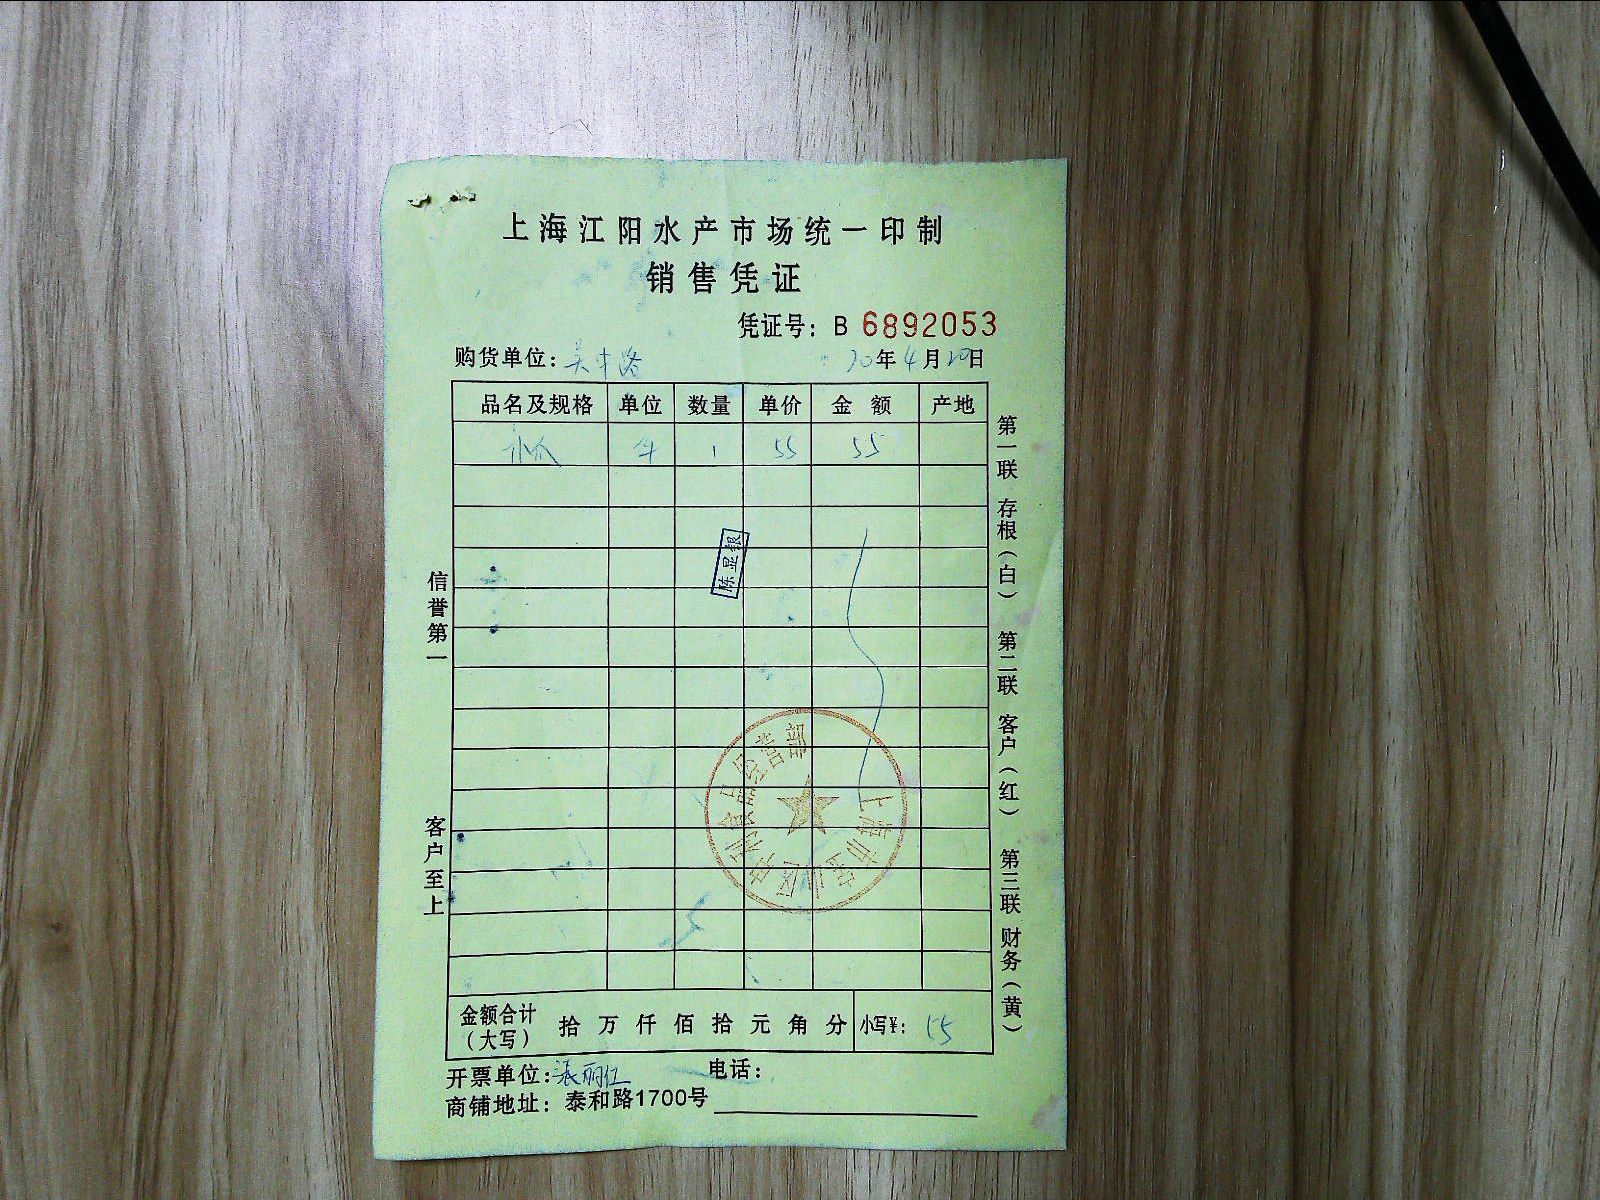 上海江阳水产市场统一印制
销售凭证
凭证号：B 6892053
购货单位：吴中路 20年4月20日
品名及规格 单位 数量 单价 金额 产地
斤 1 55 55
陈显银
信誉第一
客户至上
第一联 存根（白） 第二联 客户（红） 第三联 财务（黄）
上海市宝山区 食品经营部
金额合计（大写） 拾 万 仟 佰 拾 元 角 分 小写¥：55
开票单位：张丽红 电话：
商铺地址：泰和路1700号